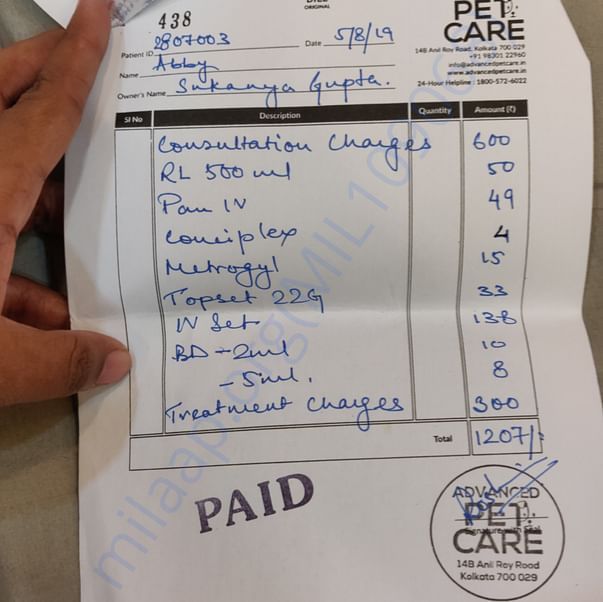 ORIGINAL
438
PET
CARE
14B Anil Roy Road, Kolkata 700 029
+91 98301 22960
info@advancedpetcare.in
www.advancedpetcare.in
24-Hour Helpline : 1800-572-6022
Patient ID 2807003 Date 5/8/19
Name Abby
Owner's Name Sukanya Gupta.
Sl No Description Quantity Amount (₹)
Consultation Charges 600
RL 500 ml 50
Pan IV 49
Conciplex 4
Metrogyl 15
Topset 22G 33
IV Set 138
BD - 2ml 10
- 5ml. 8
Treatment Charges 300
Total 1207/-
PAID
ADVANCED
PET
CARE
Signature with Seal
14B Anil Roy Road
Kolkata 700 029